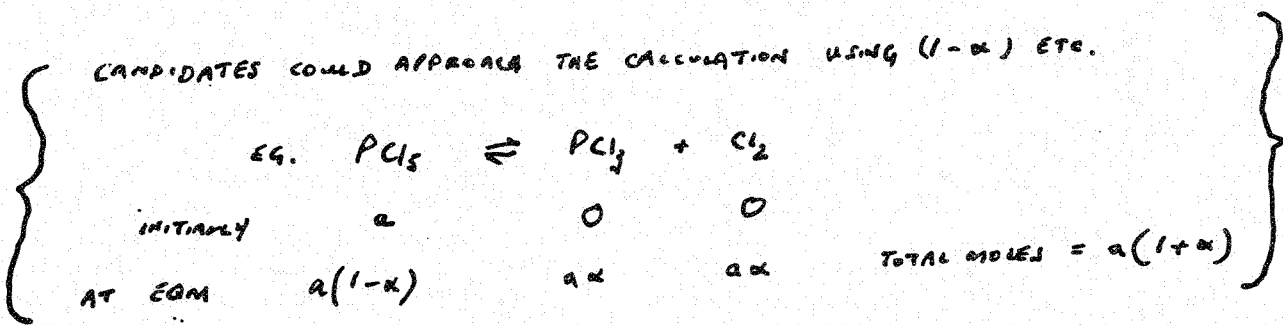 CANDIDATES COULD APPROACH THE CALCULATION USING (1-α) ETC.
EG. PCl₅ ⇌ PCl₃ + Cl₂
INITIALLY a 0 0
AT EQM a(1-α) aα aα TOTAL MOLES = a(1+α)